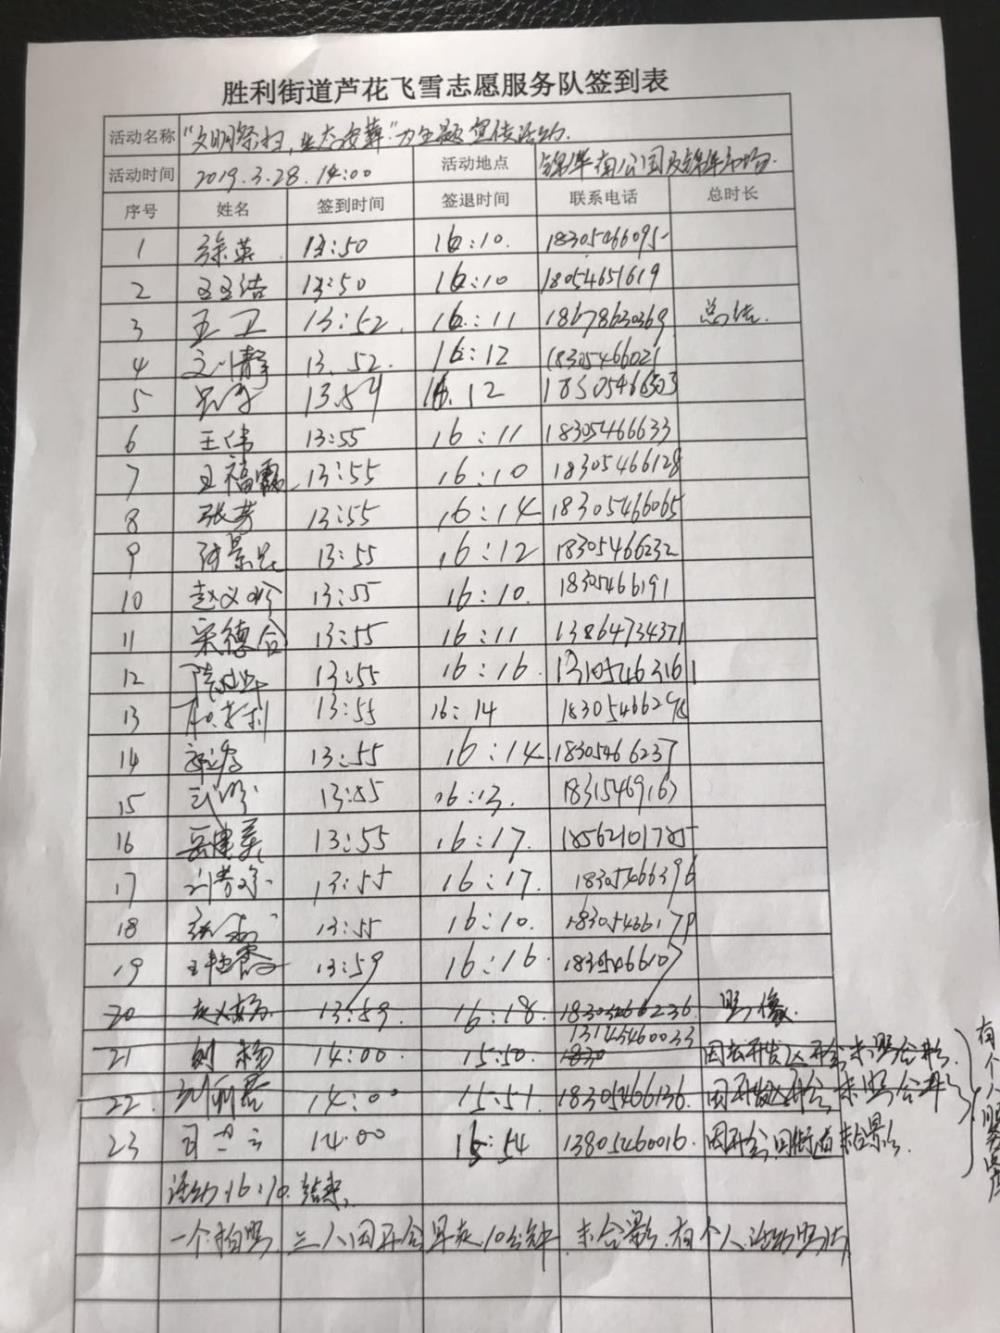 胜利街道芦花飞雪志愿服务队签到表
活动名称 "文明祭扫,生态安葬"为主题宣传活动.
活动时间 2019.3.28.14:00 活动地点 锦华南公园及锦华市场.
序号 姓名 签到时间 签退时间 联系电话 总时长
1 徐英 13:50 16:10. 18305466095
2 王玉洁 13:50 16:10 18054651619
3 王卫 13:52. 16:11 18678630369 总结.
4 文静 13.52. 16:12 18305466021
5 13.54 16.12 18305466303
6 王伟 13:55 16:11 18305466633
7 王福霞 13:55 16:10 18305466128
8 张芳 13:55 16:14 18305466065
9 13:55 16:12 18305466232
10 赵义 13:55 16:10. 18305466191
11 宋德合 13:55 16:11 13864734371
12 13:55 16:16. 13105463161
13 13:55 16:14 183054662
14 13:55 16:14. 18305466237
15 13:55 16:13. 18315469163
16 岳建美 13:55 16:17. 18562101785
17 13:55 16:17. 18305466396
18 13:55 16:10. 18305466179
19 13:59 16:16. 18305466107
20 13:59. 16:18. 18305466236 照像
21 刘杨 14:00 15:50. 13145460033 因去开发区开会,未照合影.
22. 14:00 15:51. 18305466136. 因开发区开会,未照合影
23 14.00 15:54 13805460016. 因开会,回街道未合影.
有个人服务照片
活动16:10.结束,
一个拍照,三人因开会早走10分钟,未合影,有个人活动照片